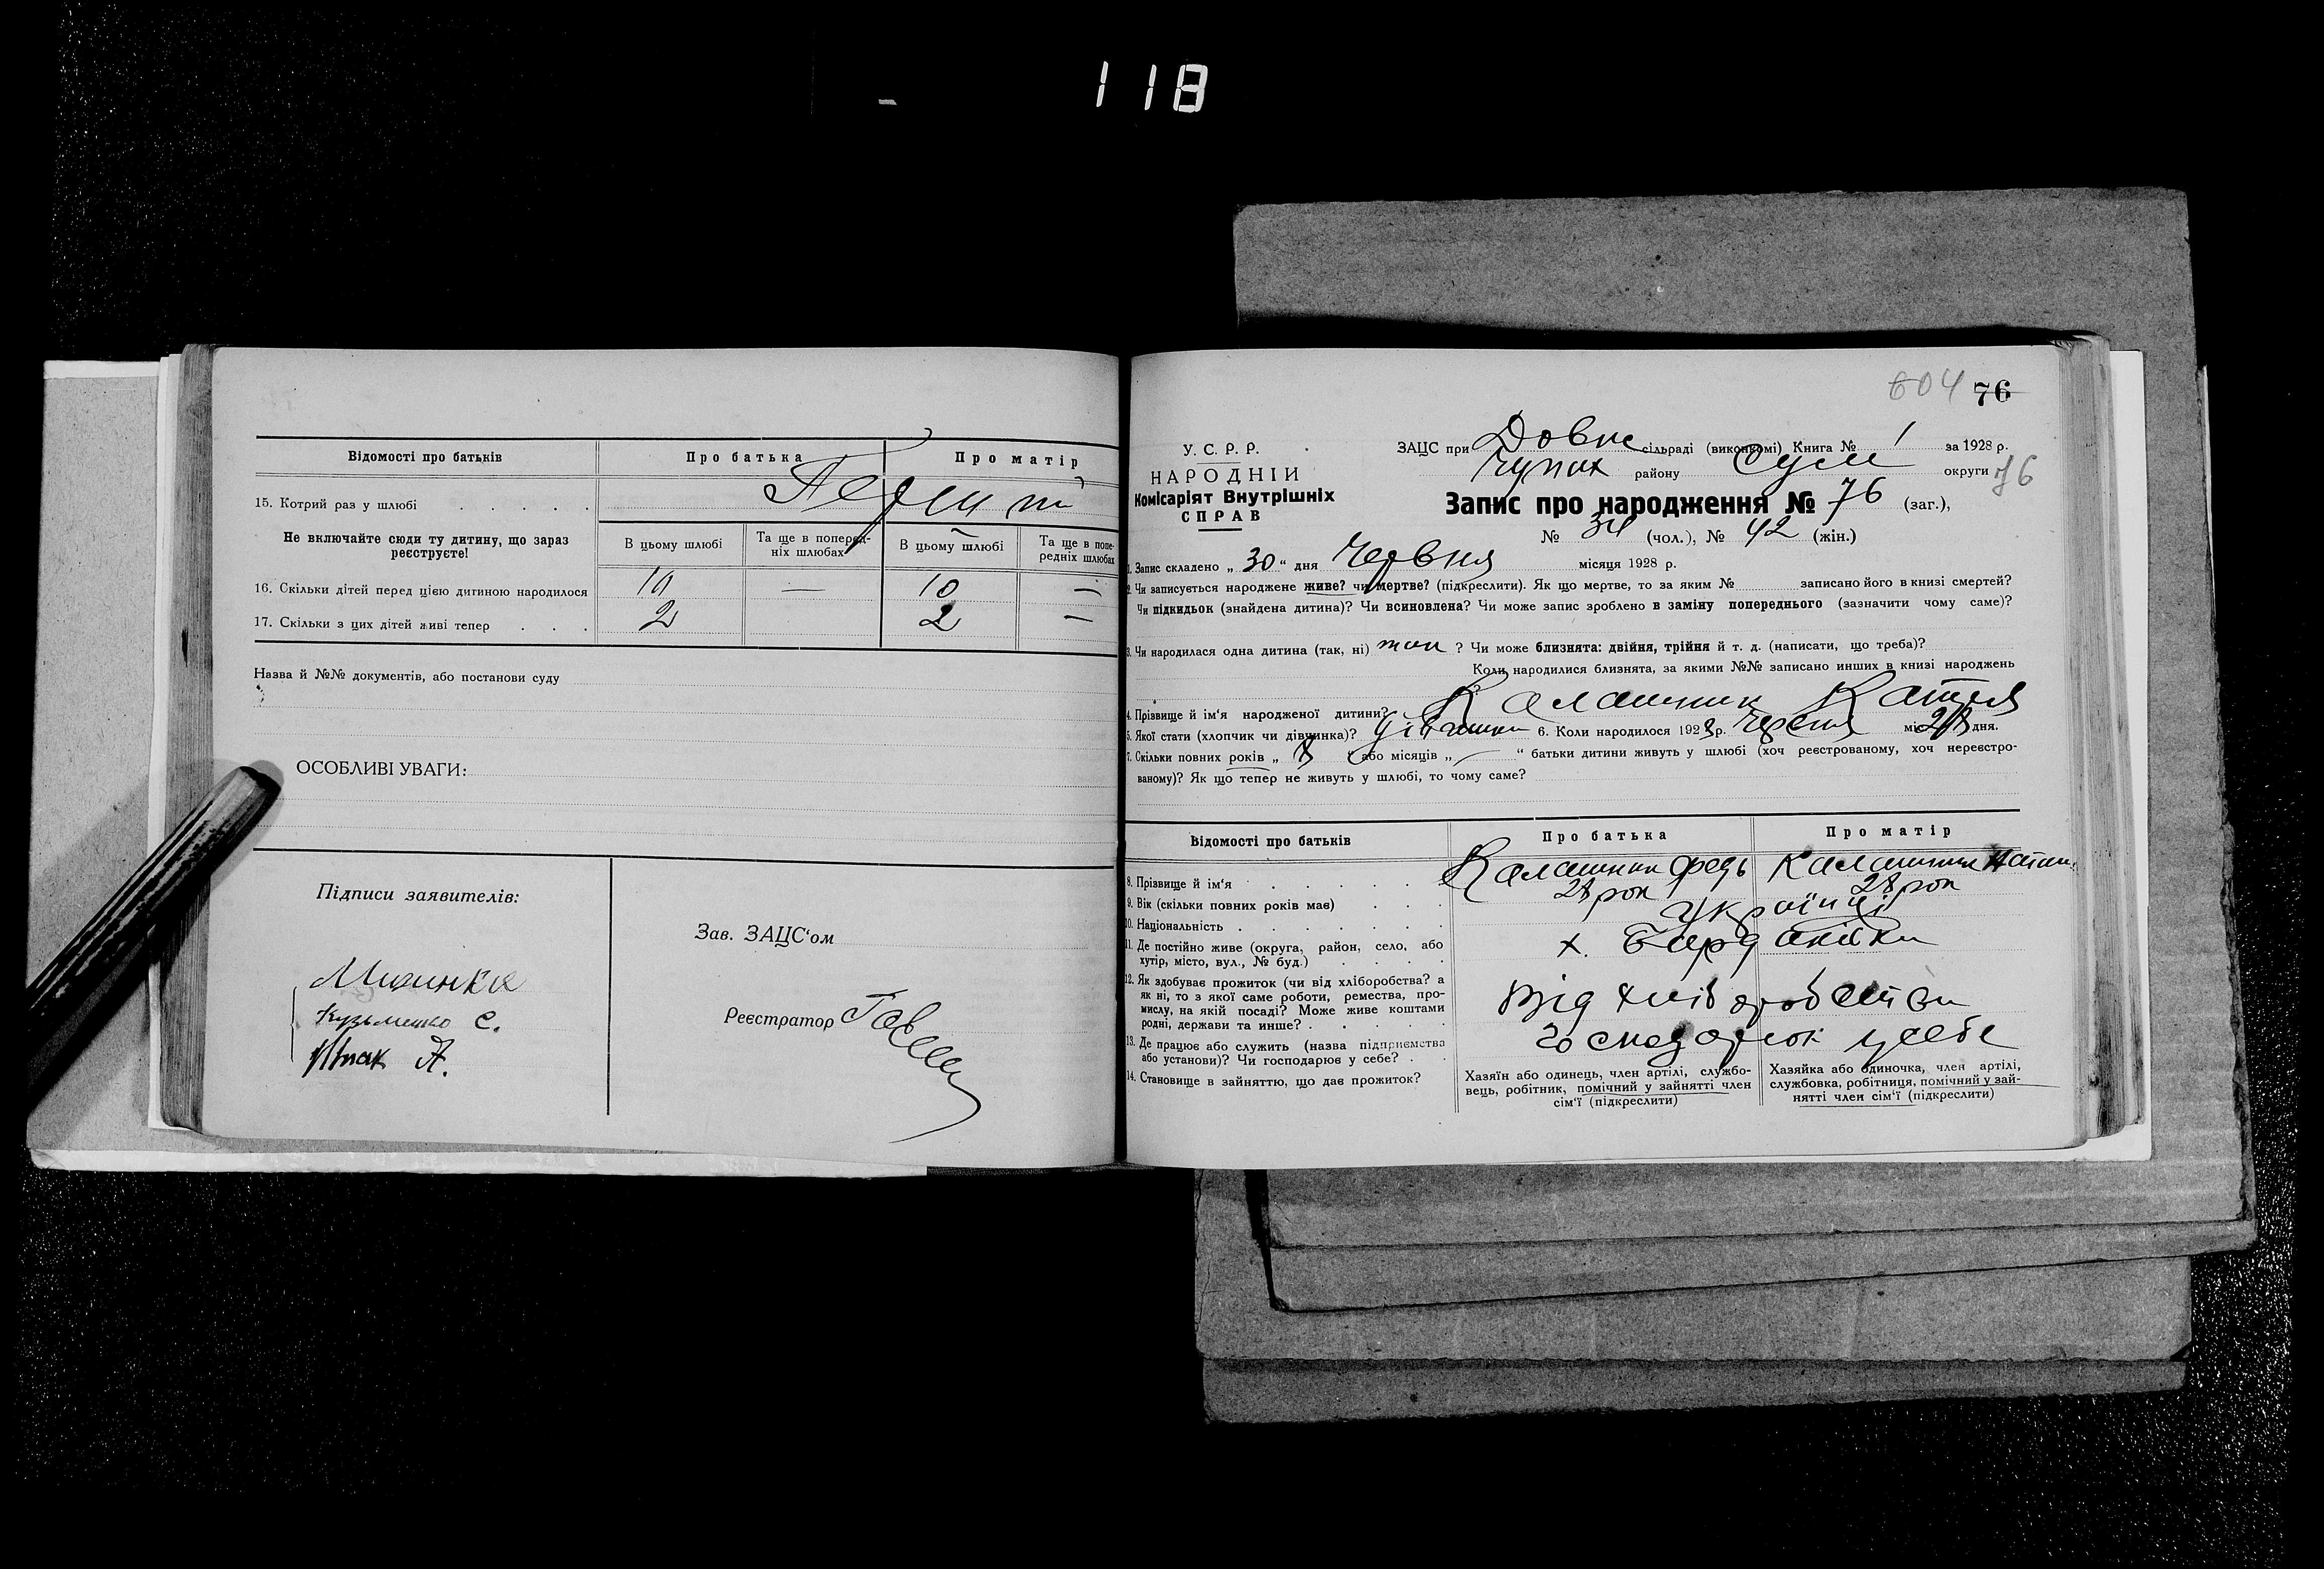 118
Відомості про батьків
Про батька
Про матір
15. Котрий раз у шлюбі
Не включайте сюди ту дитину, що зараз реєструєте!
В цьому шлюбі
Та ще в попередніх шлюбах
В цьому шлюбі
Та ще в попередніх шлюбах
16. Скільки дітей перед цією дитиною народилося 10 — 10 —
17. Скільки з цих дітей живі тепер 2 2 —
Назва й №№ документів, або постанови суду
ОСОБЛИВІ УВАГИ:
Підписи заявителів:
Кузьменко С.
Зав. ЗАЦС‘ом
Реєстратор
604 76
У. С. Р. Р.
НАРОДНІЙ
Комісаріят Внутрішніх
СПРАВ
ЗАЦС при Довж сільраді (виконкомі) Книга № 1 за 1928 р.
Чупах району Сум округи 76
Запис про народження № 76 (заг.),
№ 34 (чол.), № 42 (жін.)
1. Запис складено „ 30 “ дня Червня місяця 1928 р.
2. Чи записується народжене живе? чи мертве? (підкреслити). Як що мертве, то за яким № записано його в книзі смертей?
Чи підкидьок (знайдена дитина)? Чи всиновлена? Чи може запис зроблено в заміну попереднього (зазначити чому саме)?
3. Чи народилася одна дитина (так, ні) так ? Чи може близнята: двійня, трійня й т. д. (написати, що треба)?
Коли народилися близнята, за якими №№ записано инших в книзі народжень
4. Прізвище й ім‘я народженої дитини? Калашник Катря
5. Якої стати (хлопчик чи дівчинка)? дівчинка 6. Коли народилося 1928 р. Червня міс. 28 дня.
7. Скільки повних років „ 8 “ або місяців „ — “ батьки дитини живуть у шлюбі (хоч реєстрованому, хоч нереєстро-
ваному)? Як що тепер не живуть у шлюбі, то чому саме?
Відомості про батьків
Про батька
Про матір
8. Прізвище й ім‘я Калашник Федь Калашник
9. Вік (скільки повних років має) 28 рок 28 рок
10. Національність Українці
11. Де постійно живе (округа, район, село, або
хутір, місто, вул., № буд.) х.
12. Як здобуває прожиток (чи від хліборобства? а
як ні, то з якої саме роботи, ремества, про-
мислу, на якій посаді? Може живе коштами
родні, держави та инше?
Від хліборобства
13. Де працює або служить (назва підприємства
або установи)? Чи господарює у себе?
господарює у себе
14. Становище в зайняттю, що дає прожиток?
Хазяїн або одинець, член артілі, службо-
вець, робітник, помічний у зайнятті член
сім‘ї (підкреслити)
Хазяйка або одиночка, член артілі,
службовка, робітниця, помічний у зай-
нятті член сім‘ї (підкреслити)